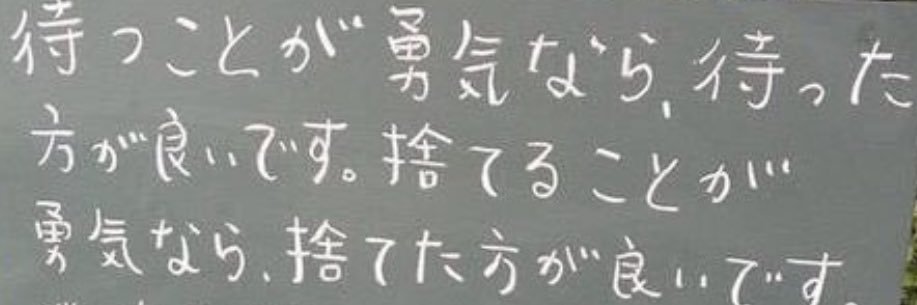 待つことが勇気なら、待った
方が良いです。捨てることが
勇気なら、捨てた方が良いです。